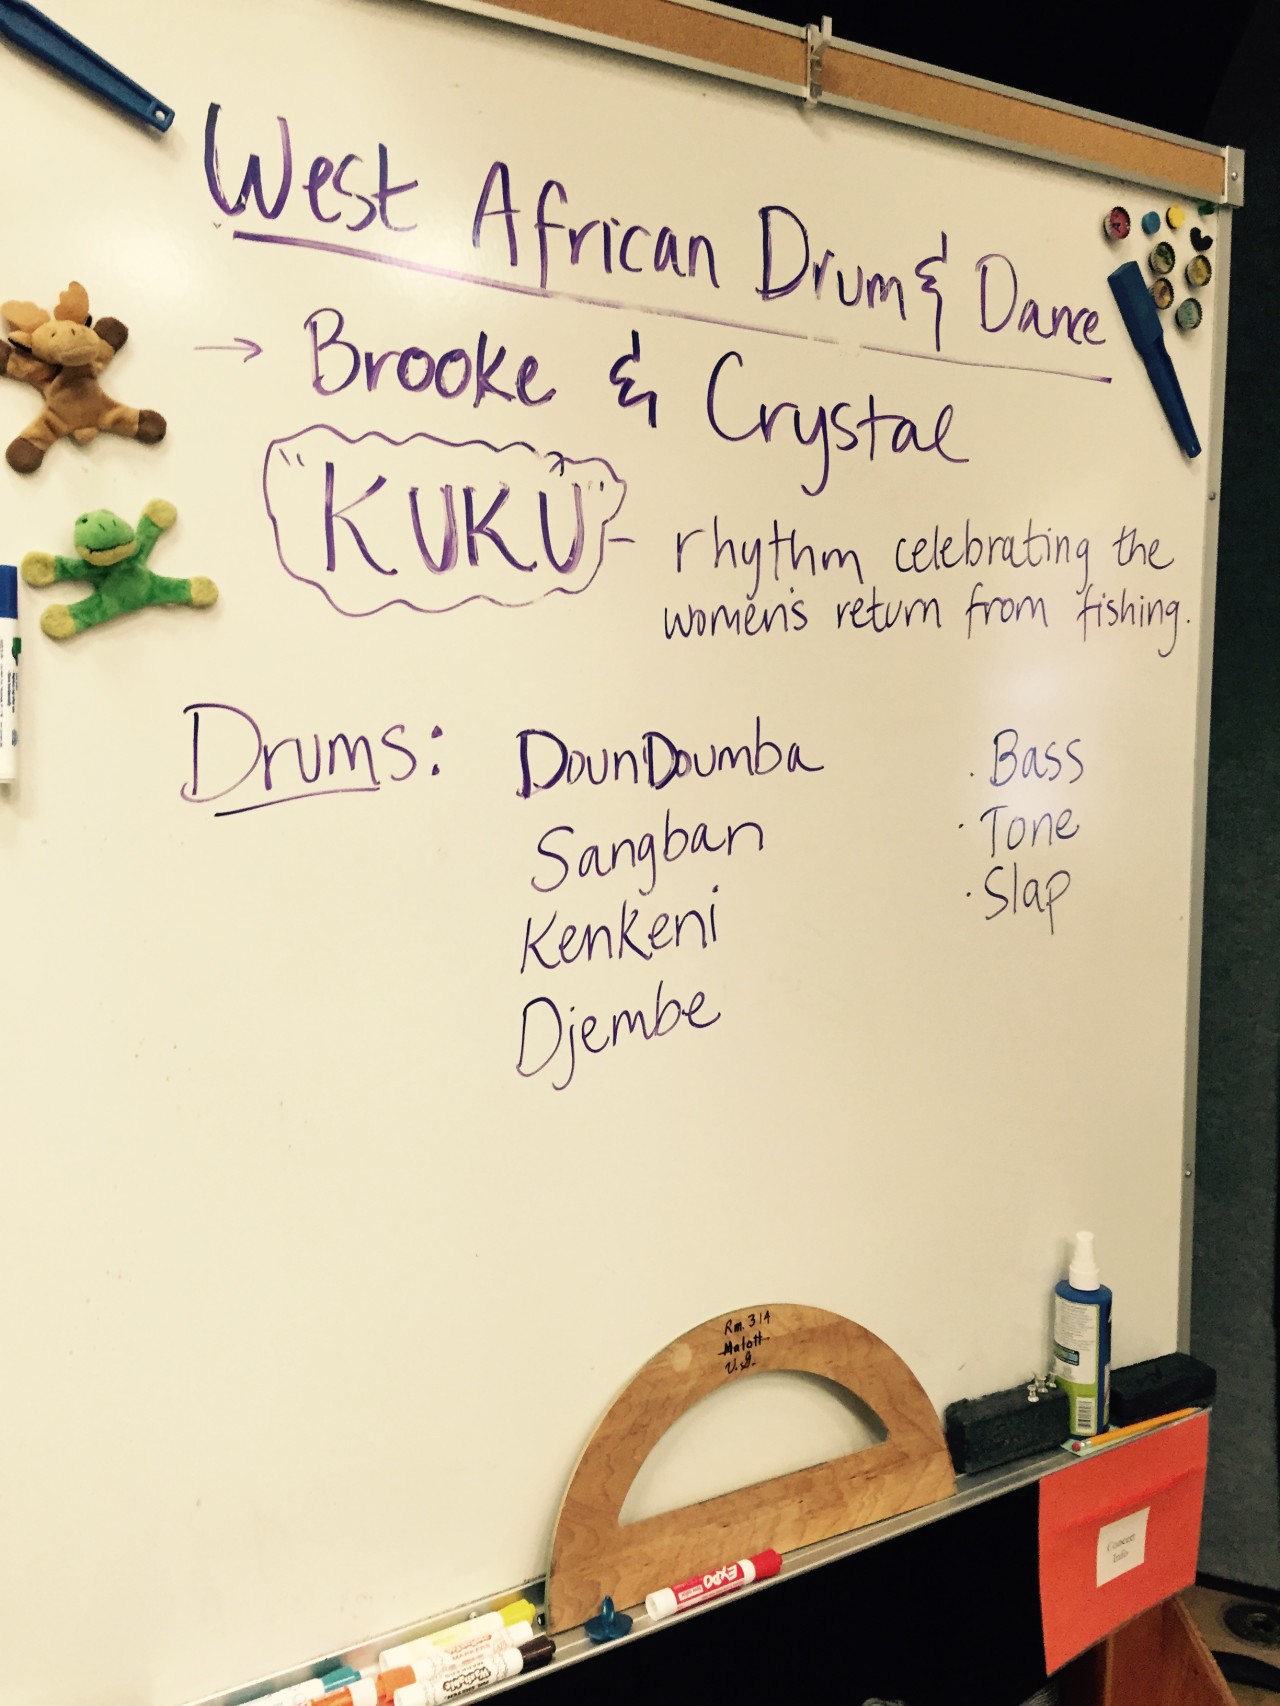 West African Drum & Dance
→ Brooke & Crystal
"KUKU" - rhythm celebrating the
women's return from fishing.
Drums: DounDoumba
Sangban
Kenkeni
Djembe
· Bass
· Tone
· Slap
Rm. 314
Malott
V.S.
EXPO
Concert
Info